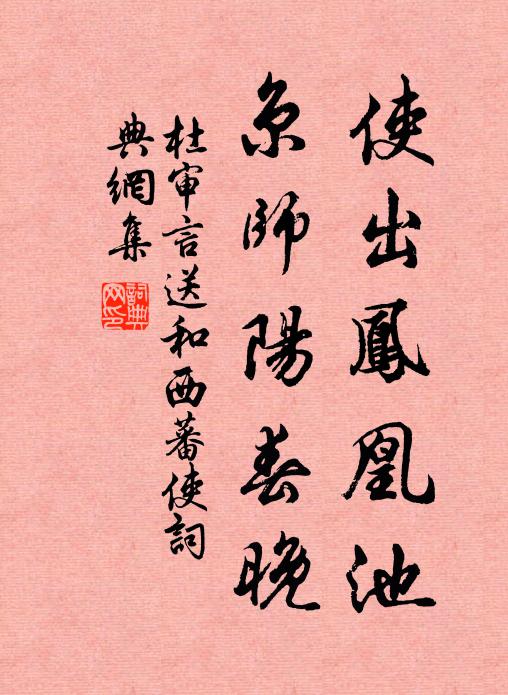 使出鳳凰池
京師陽春晚
杜审言送和西蕃使詞
典網集
詞典
网印